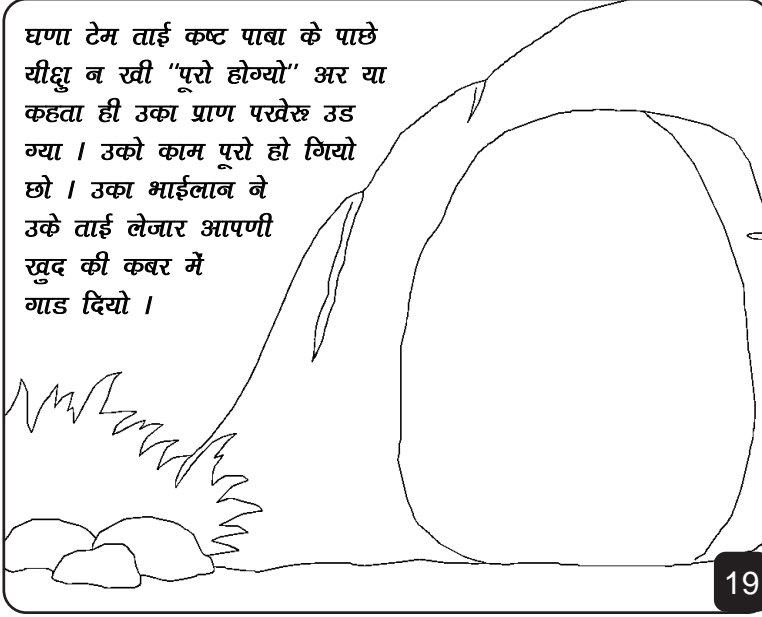 घणा टेम ताई कष्ट पाबा के पाछे
यीक्षु न खी "पूरो होग्यो" अर या
कहता ही उका प्राण पखेरू उड
ग्या । उको काम पूरो हो गियो
छो । उका भाईलान ने
उके ताई लेजार आपणी
खुद की कबर में
गाड दियो ।
19